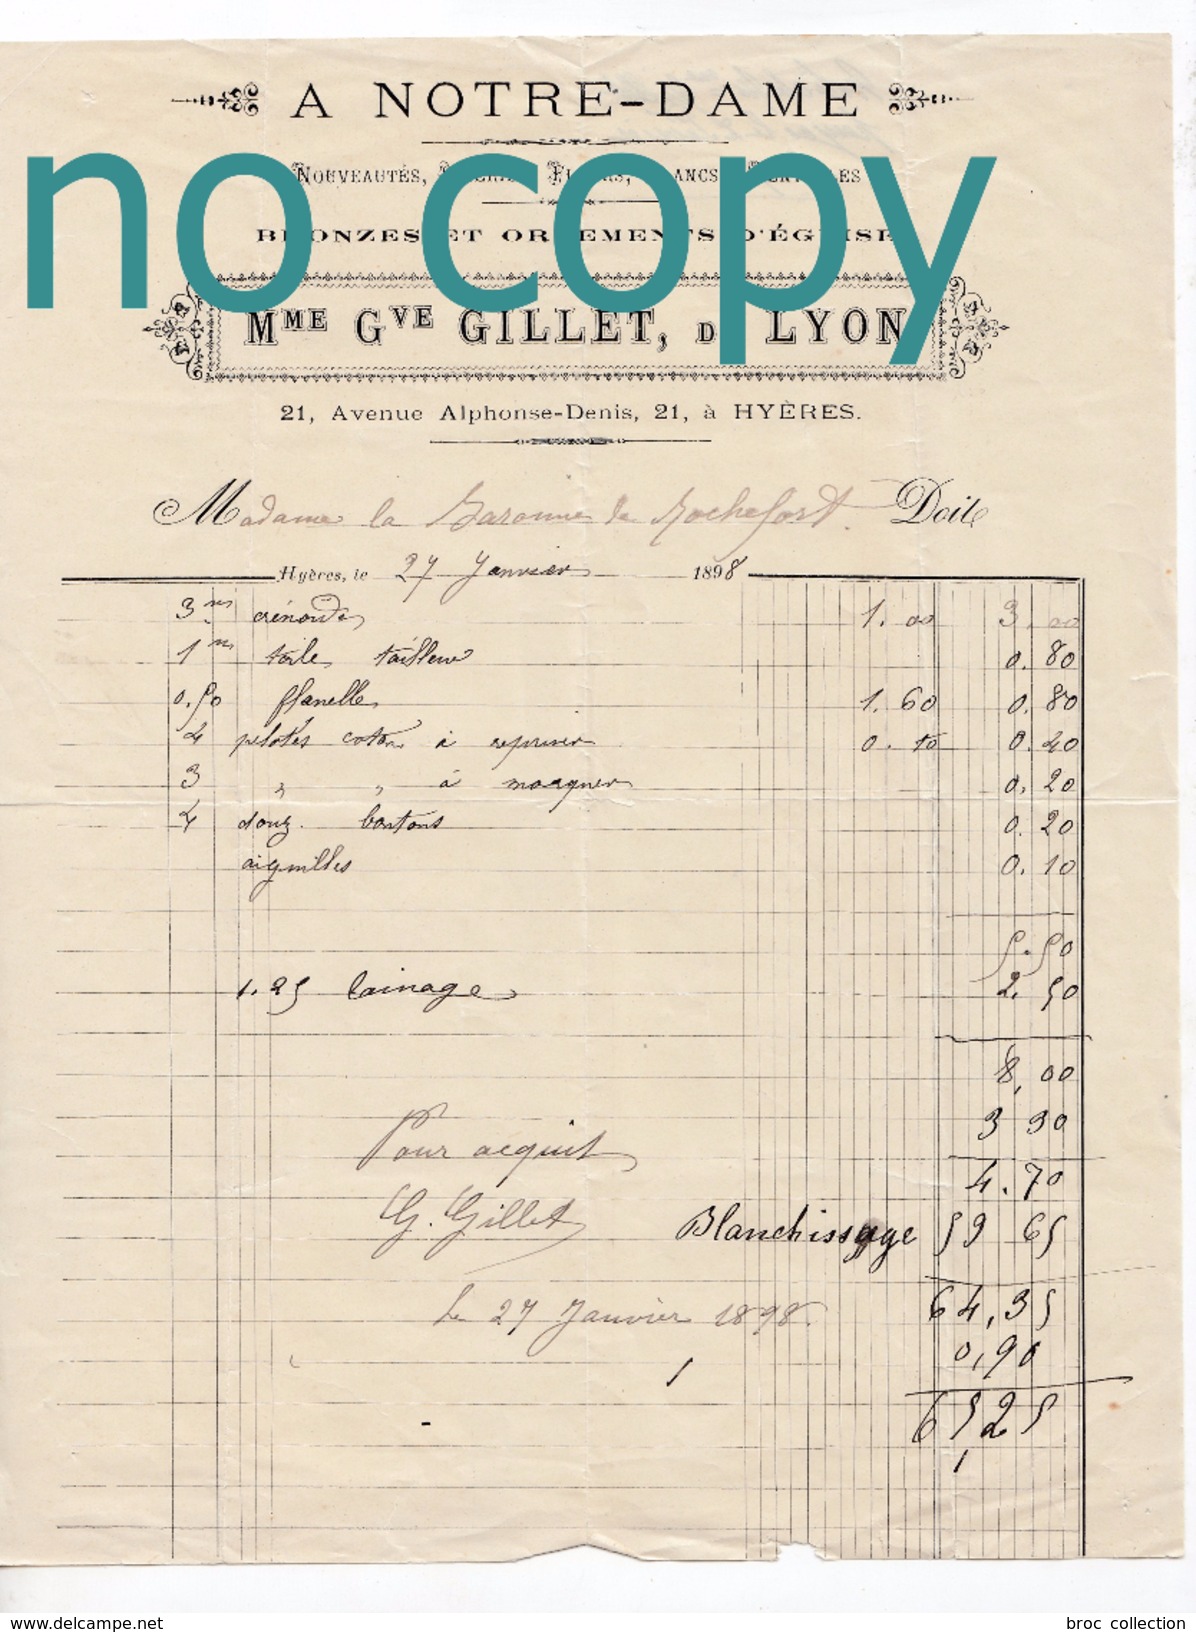 A NOTRE-DAME
no copy
NOUVEAUTÉS,
BRONZES ET ORNEMENTS D'ÉGLISE
MME GVE GILLET, DE LYON
21, Avenue Alphonse-Denis, 21, à HYÈRES.
Madame la Baronne de Rochefort. Doit
Hyères, le 27 Janvier 1898
3 m 1.00 3.00
1 m toile tailleur 0.80
0.50 flanelle 1.60 0.80
4 pelotes coton à repriser 0.10 0.40
3 " " à marquer 0.20
4 douz. boutons 0.20
aiguilles 0.10
5.50
1.25 lainage 2.50
8,00
3 30
Pour acquit
4.70
G. Gillet
Blanchissage 59 65
64,35
Le 27 Janvier 1898
0,90
65,25
www.delcampe.net
broc_collection